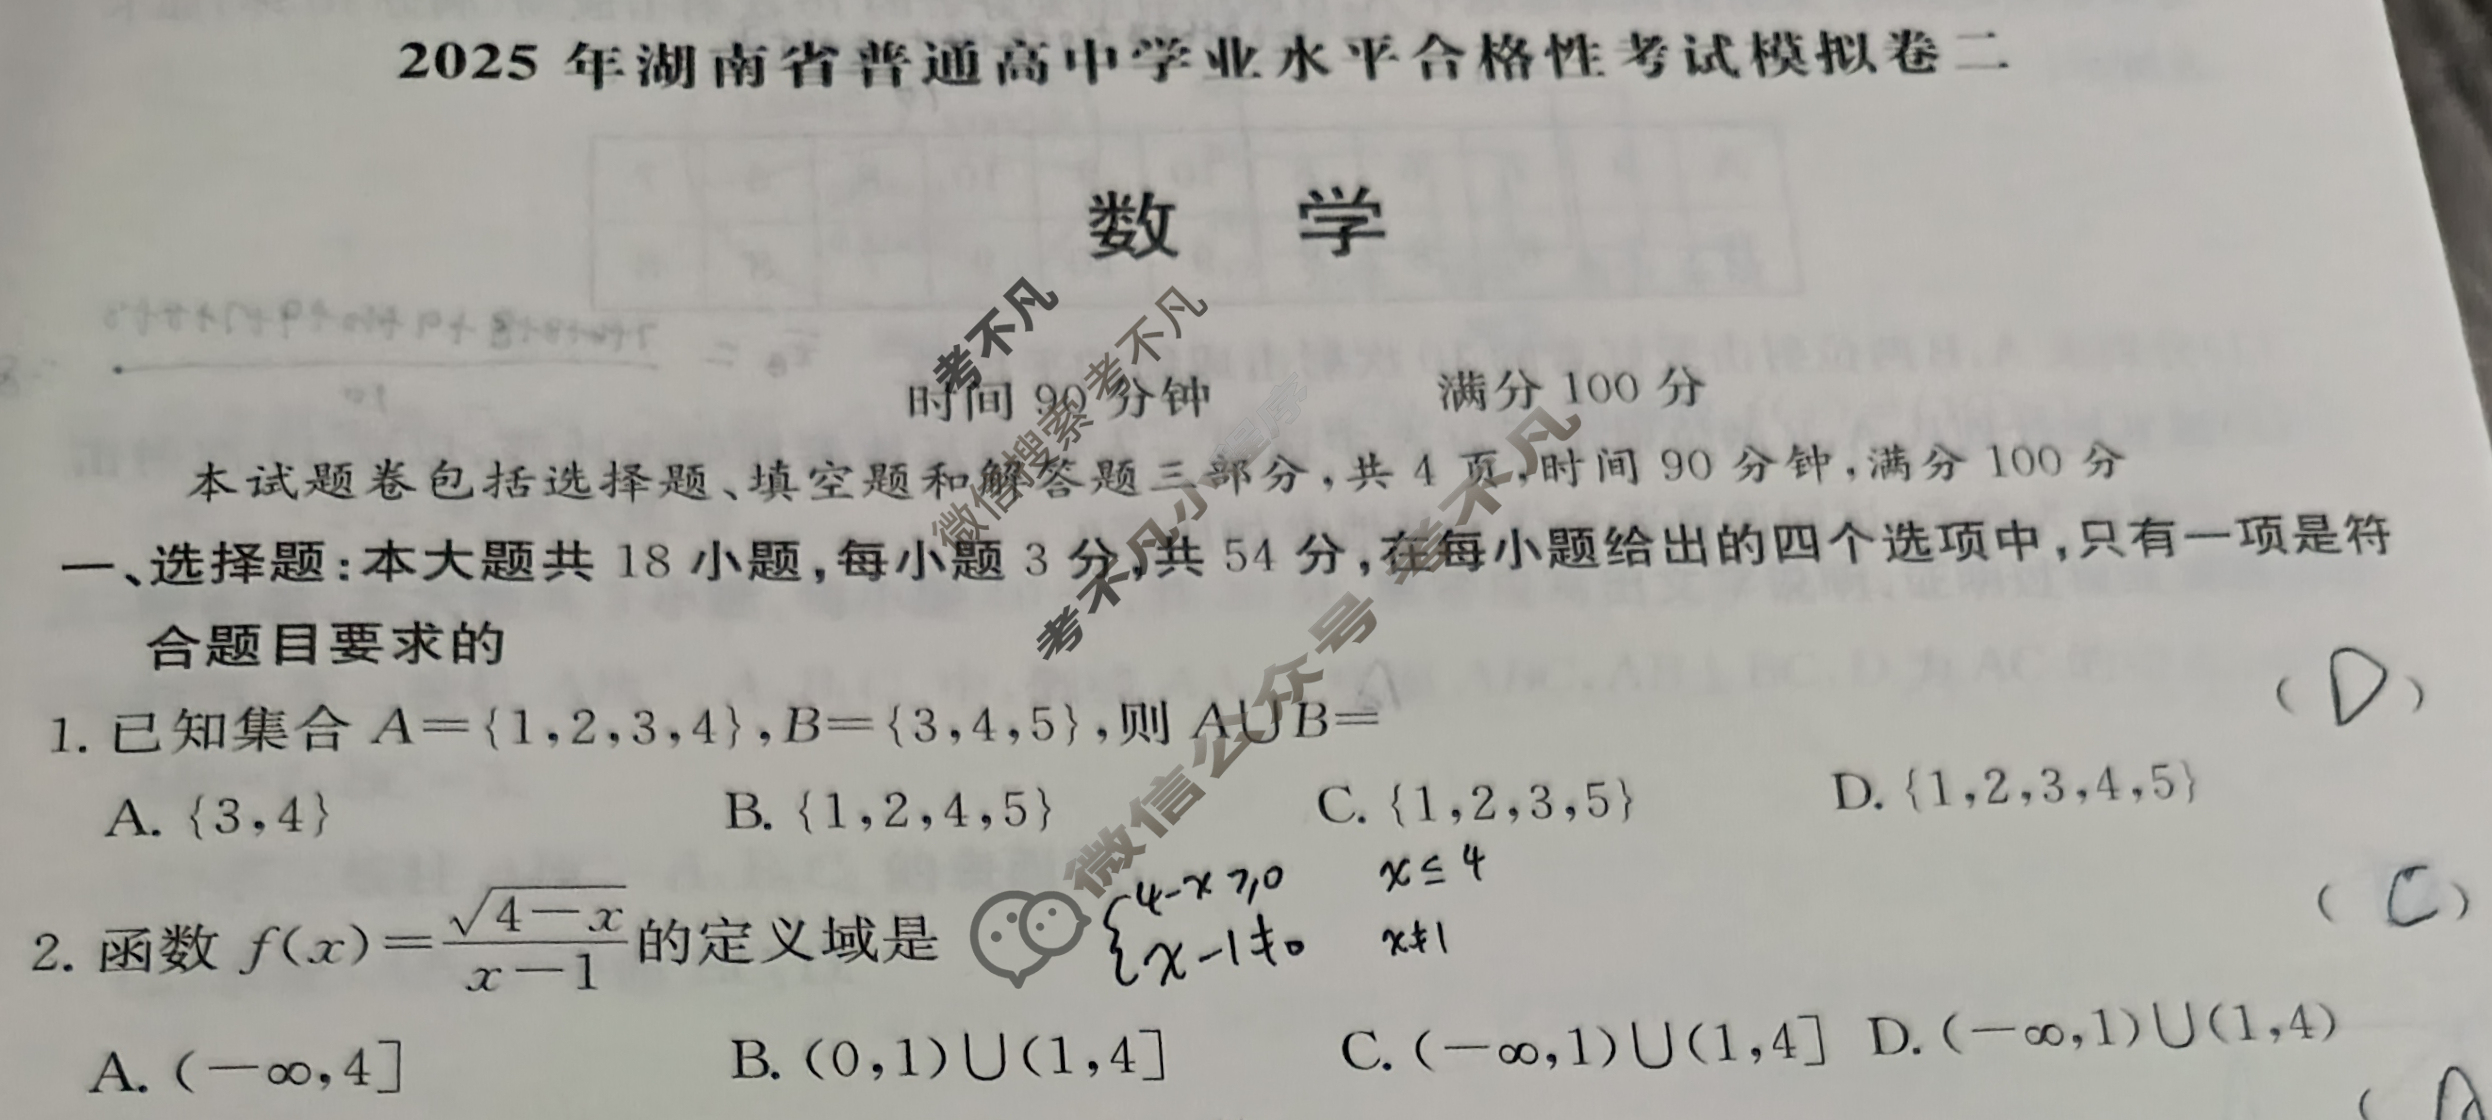 2025 年湖南省普通高中学业水平合格性考试模拟卷二
数 学
时间 90 分钟 满分 100 分
本试题卷包括选择题、填空题和解答题三部分,共 4 页,时间 90 分钟,满分 100 分
一、选择题:本大题共 18 小题,每小题 3 分,共 54 分,在每小题给出的四个选项中,只有一项是符
合题目要求的
1. 已知集合 A={1,2,3,4},B={3,4,5},则 A∪B= ( D )
A. {3,4} B. {1,2,4,5} C. {1,2,3,5} D. {1,2,3,4,5}
4-x≥0 x≤4
2. 函数 f(x)=√(4-x)/(x-1) 的定义域是 ( C )
x-1≠0 x≠1
A. (-∞,4] B. (0,1)∪(1,4] C. (-∞,1)∪(1,4] D. (-∞,1)∪(1,4)
考不凡
微信搜索 考不凡
考不凡小程序
微信公众号 考不凡